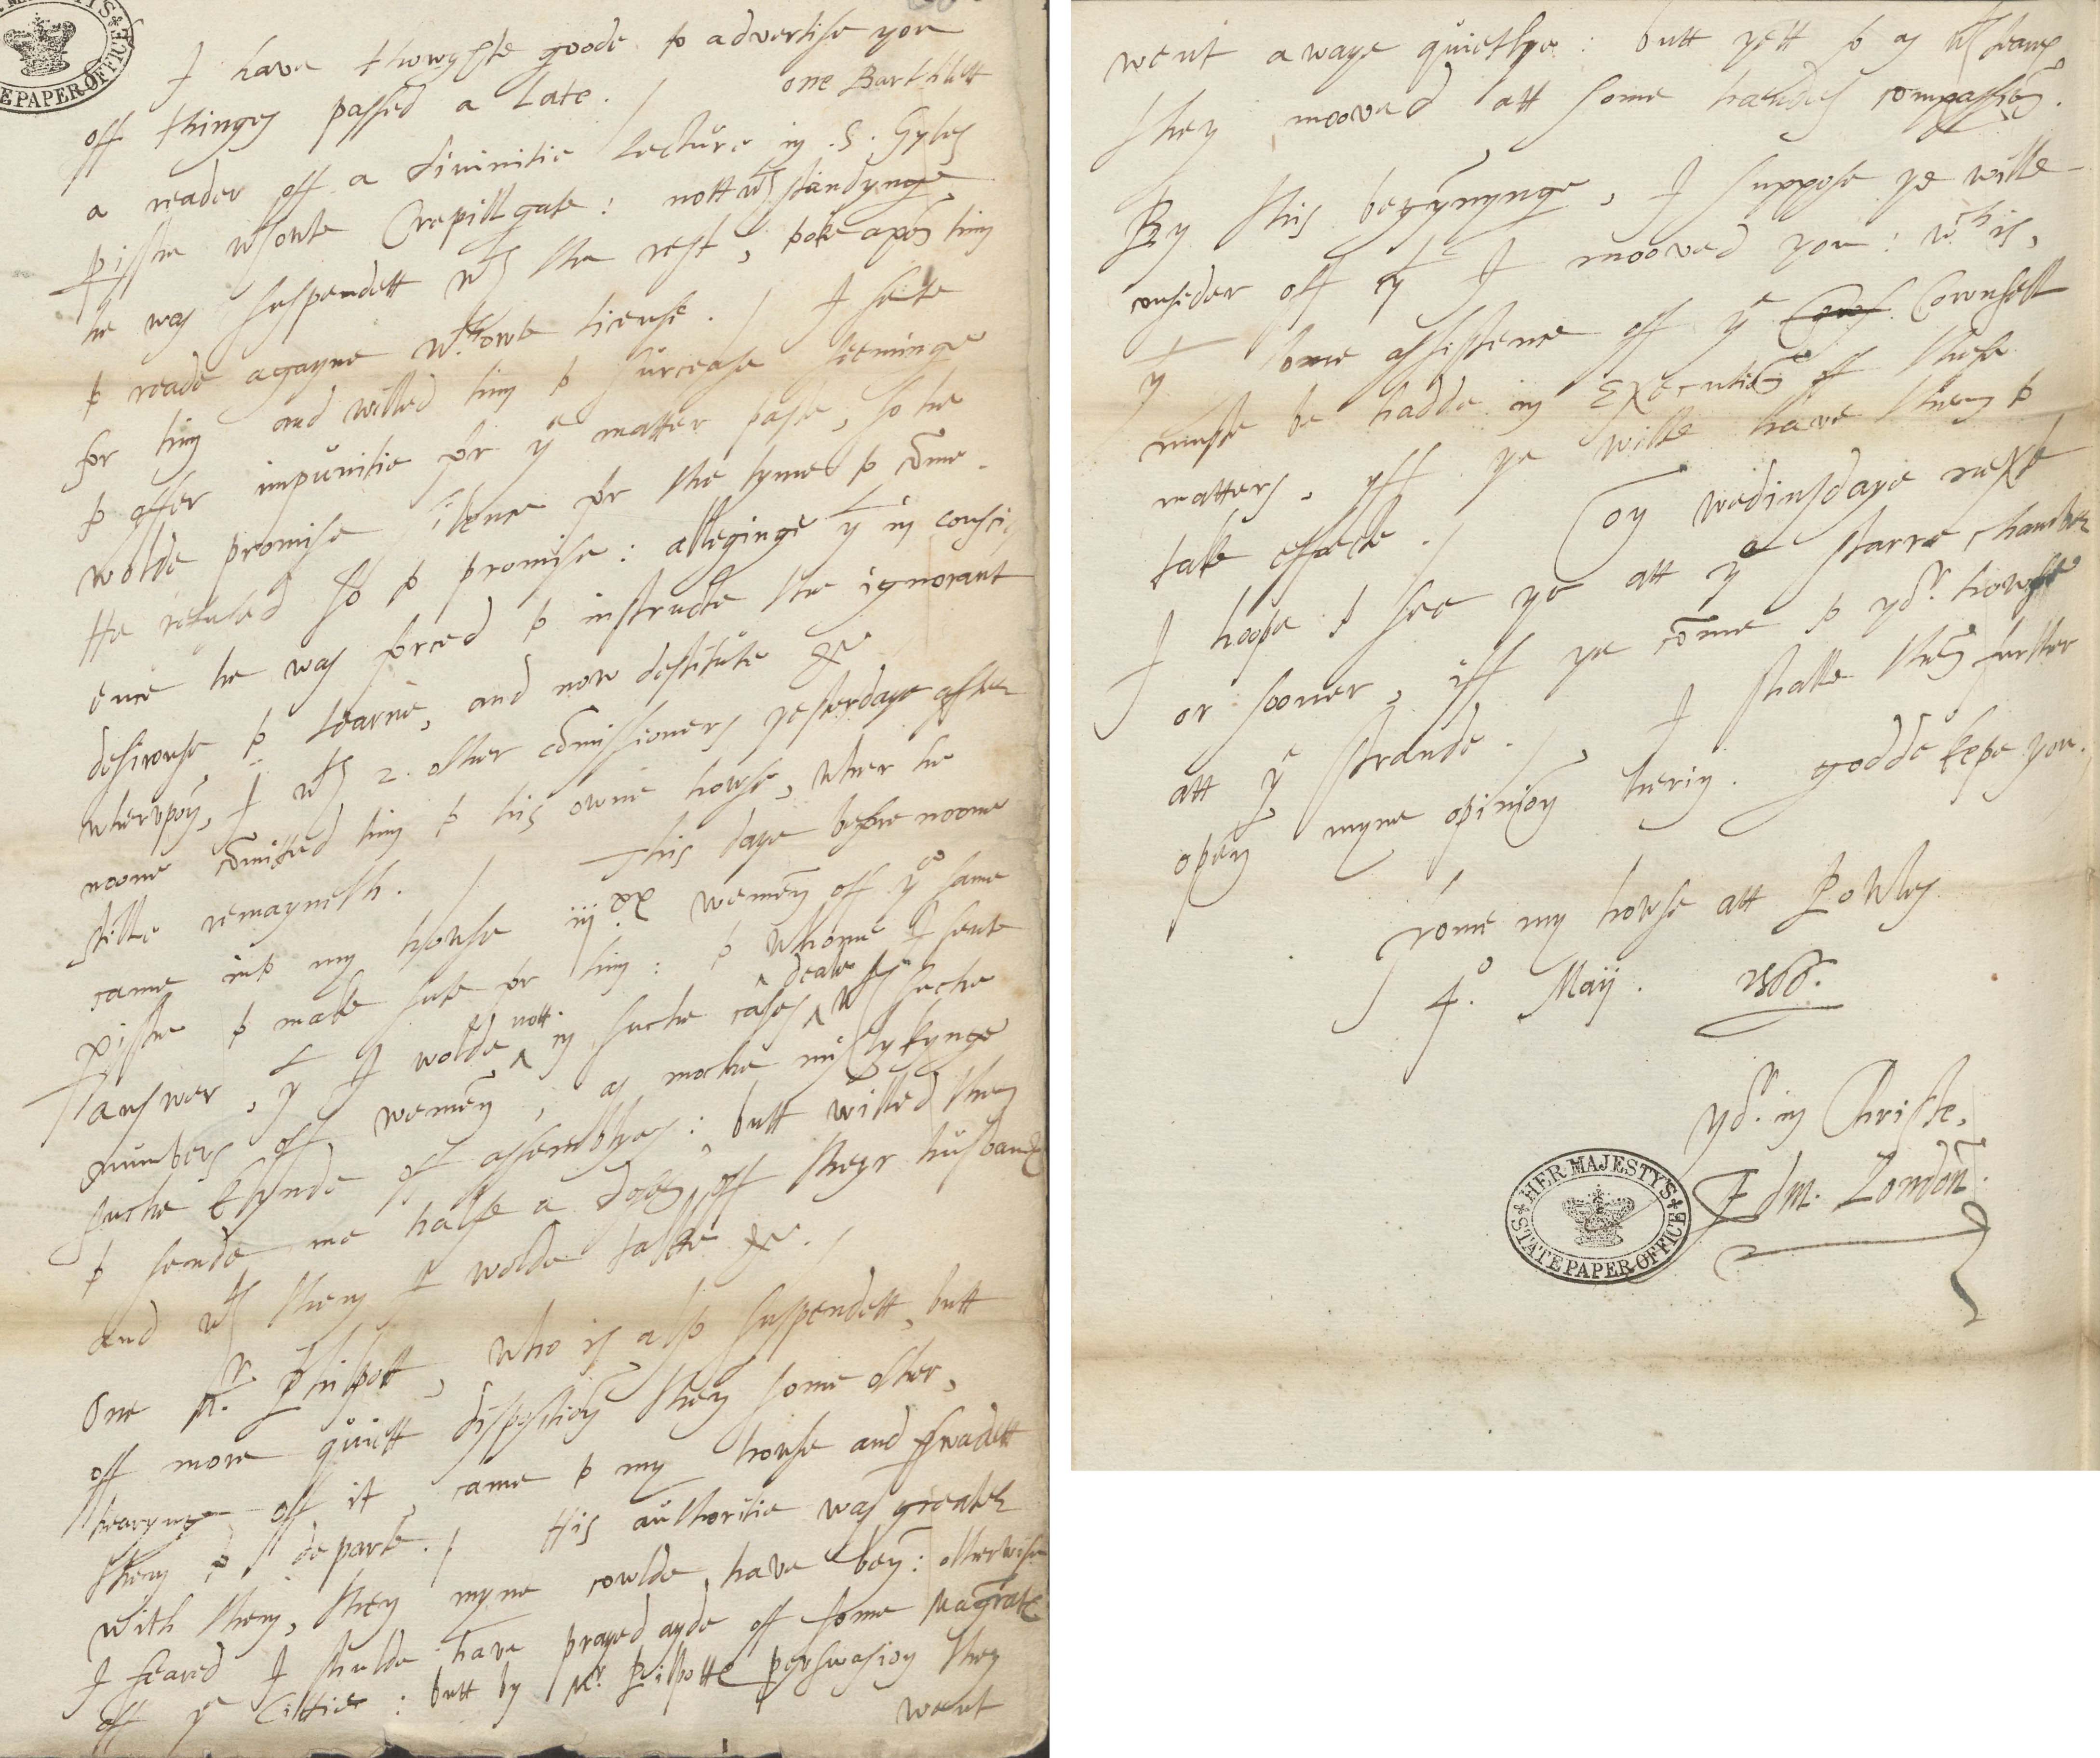 I have thowghte goode to advertise you
off thinges passed a late. / one Bartlelett
a reader off a divinitie lecture in .S. Gyles
pishe wthowte Crepillgate : nott wthstandynge
he was suspendett wth the rest, toke apon him
to reade agayne wthowte license. / I sente
for him and willed him to surcease
to offer impunitie for ye matter paste, so he
wolde promise silence for the tyme to come.
He refused so to promise : alleginge yt in consci
ence he was forced to instructe the ignorant
desirouse to learne, and now destitute &c
wherupon, I wth 2. other comissioners yesterdaye after
noone comitted him to his owne howse, wher he
stille remayneth. / This daye before noone
came into my howse iij xx wemen off ye same
pishe to make sute for him : to whome I sente
answer, yt I wolde nott in suche cases deale wth suche
numbers of wemen, as moche mislykynge
suche kynde of assemblyes : butt willed them
to sende me halfe a dosen off theyr husbands
and wth them I wolde talke &c. /
One Mr. Philpott, who is also suspendett, butt
off more quiett disposition then some other,
hearynge off it, came to my howse and pswadett
them to departe. / His authoritie was greater
with them, then myne cowlde have ben : otherwise
I feared I shulde have prayed ayde off some Magrate
off ye Cittie : butt by Mr. Pilpotte perswasion they
went
went awaye quietlye : butt yett so as wth teares
they mooved att some handes compassion.
By this begynynge, I suppose ye wille
consider off yt I mooved you : wch is,
yt some assistence off ye Cownsell
muste be hadde in Execution off these
matters, yff ye wille have them to
take effecte. / On wedinsdaye nexte
I hoope to see yo att ye starre chamber
or sooner, iff ye come to yor. howse
att ye strande. / I shalle then further
open myne opinion herin. godde kepe you.
Frome my howse att Powles
4o. Maij. 1566.
yor. in Christe,
Edm. London.
HER MAJESTY'S STATE PAPER OFFICE